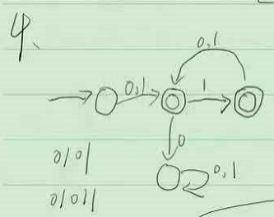 4、
0,1
0,1 1
0
0,1
0101
01011